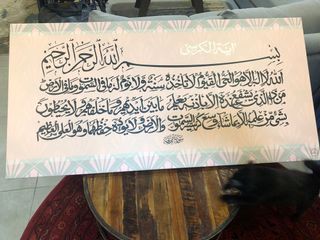 آية الكرسي
بسم الله الرحمن الرحيم
الله لا إله إلا هو الحي القيوم لا تأخذه سنة ولا نوم له ما في السموات وما في الأرض
من ذا الذي يشفع عنده إلا بإذنه يعلم ما بين أيديهم وما خلفهم ولا يحيطون
بشيء من علمه إلا بما شاء وسع كرسيه السموات والأرض ولا يؤده حفظهما وهو العلي العظيم